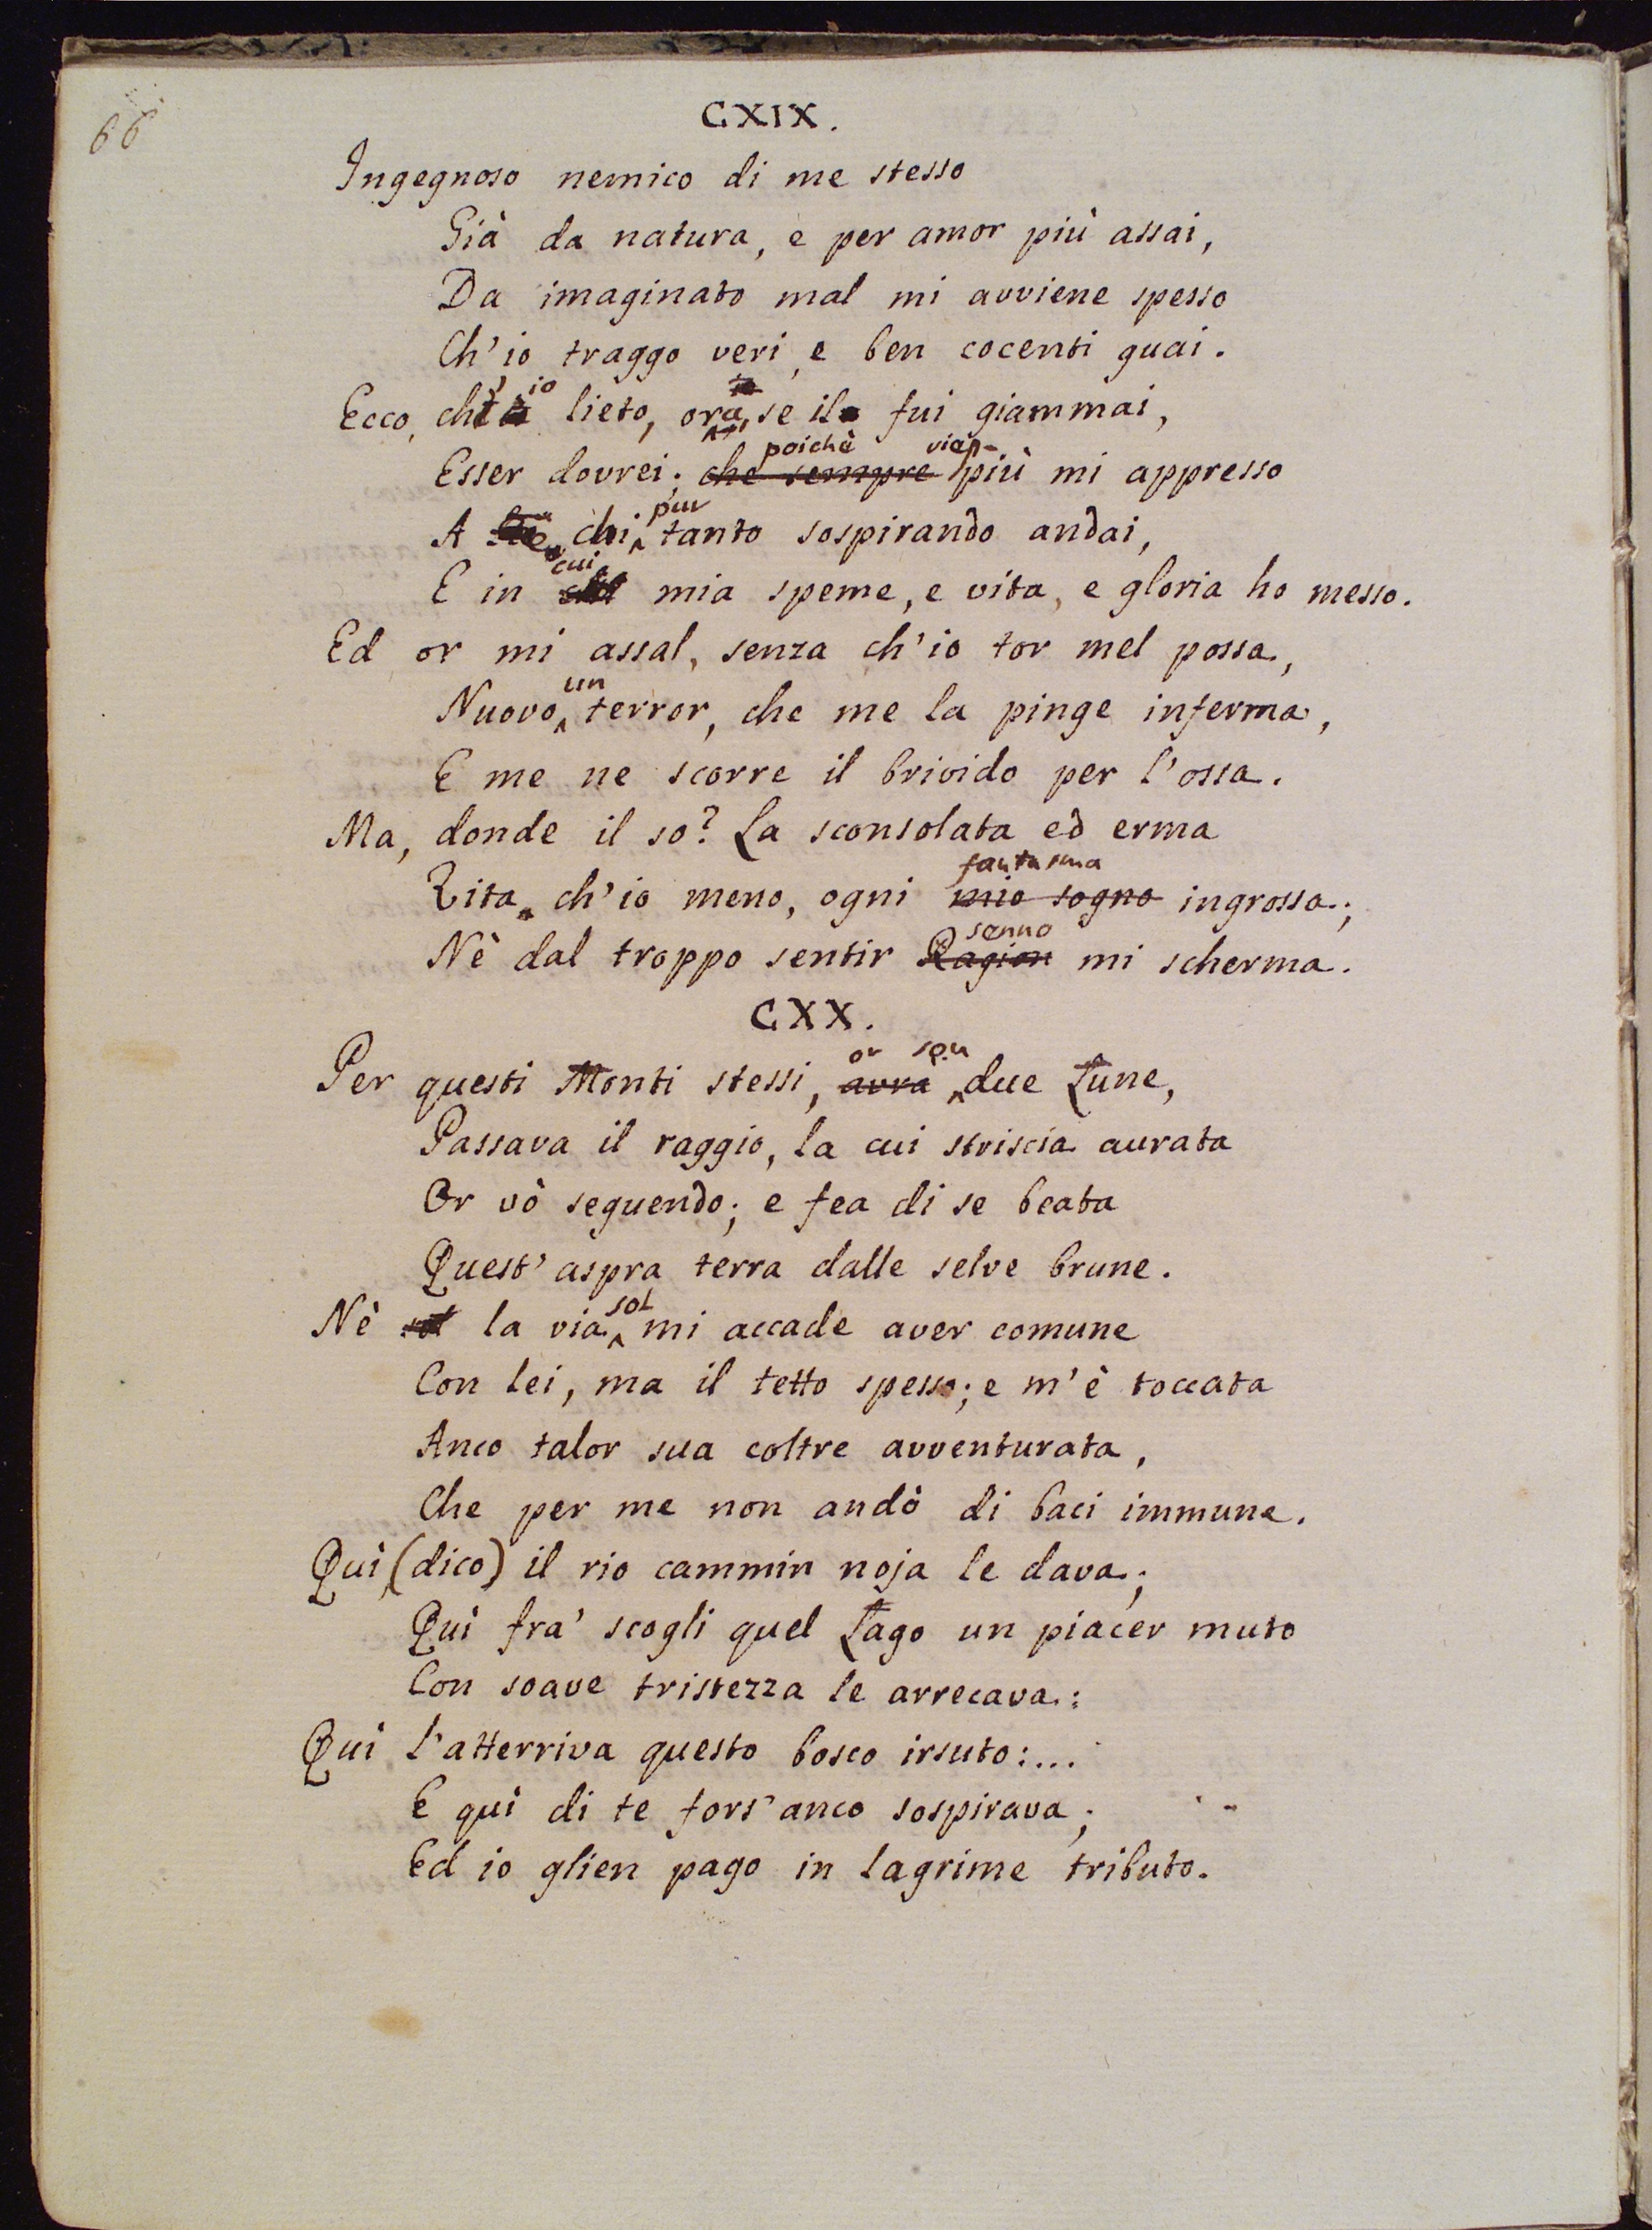 66
CXIX.
Ingegnoso nemico di me stesso
Già da natura, e per amor più assai,
Da imaginato mal mi avviene spesso
Ch'io traggo veri, e ben cocenti guai.
Ecco, ch'io lieto, ora, se il fui giammai,
Esser dovrei; che sempre poichè viep-più mi appresso
A chi pur tanto sospirando andai,
E in cui mia speme, e vita, e gloria ho messo.
Ed or mi assal, senza ch'io tor mel possa,
Nuovo un terror, che me la pinge inferma,
E me ne scorre il brivido per l'ossa.
Ma, donde il so? La sconsolata ed erma
Vita ch'io meno, ogni mio sogno fantasma ingrossa;
Nè dal troppo sentir Ragion senno mi scherma.
CXX.
Per questi Monti stessi, avrà or son due Lune,
Passava il raggio, la cui striscia aurata
Or vò seguendo; e fea di se beata
Quest' aspra terra dalle selve brune.
Nè sol la via sol mi accade aver comune
Con lei, ma il tetto spesso; e m'è toccata
Anco talor sua coltre avventurata,
Che per me non andò di baci immune.
Quì, (dico) il rio cammin noja le dava;
Quì fra' scogli quel Lago un piacer muto
Con soave tristezza le arrecava:
Quì l'atterriva questo bosco irsuto:...
E quì di te fors' anco sospirava;
Ed io glien pago in lagrime tributo.